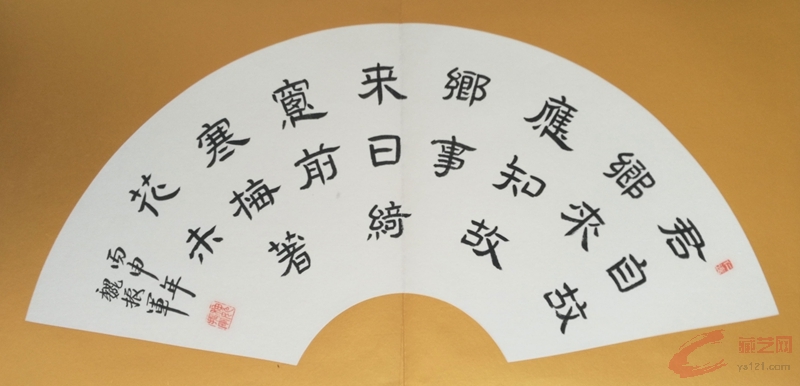 君自故
鄉來
應知故
鄉事
来日綺
窻前
寒梅著
花未
丙申年
魏振軍
藏艺网
yx121.com